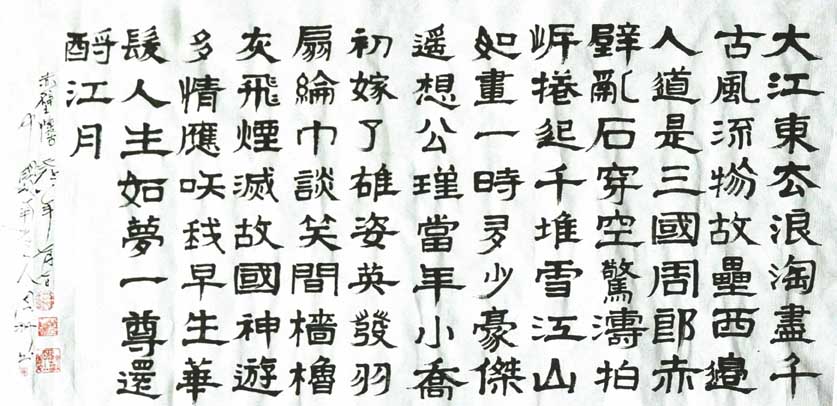 大江東去浪淘盡千
古風流物故壘西邊
人道是三國周郎赤
壁亂石穿空驚濤拍
岸捲起千堆雪江山
如畫一時多少豪傑
遙想公瑾當年小喬
初嫁了雄姿英發羽
扇綸巾談笑間檣櫓
灰飛煙滅故國神遊
多情應咲我早生華
髮人生如夢一尊還
酹江月
赤壁懷